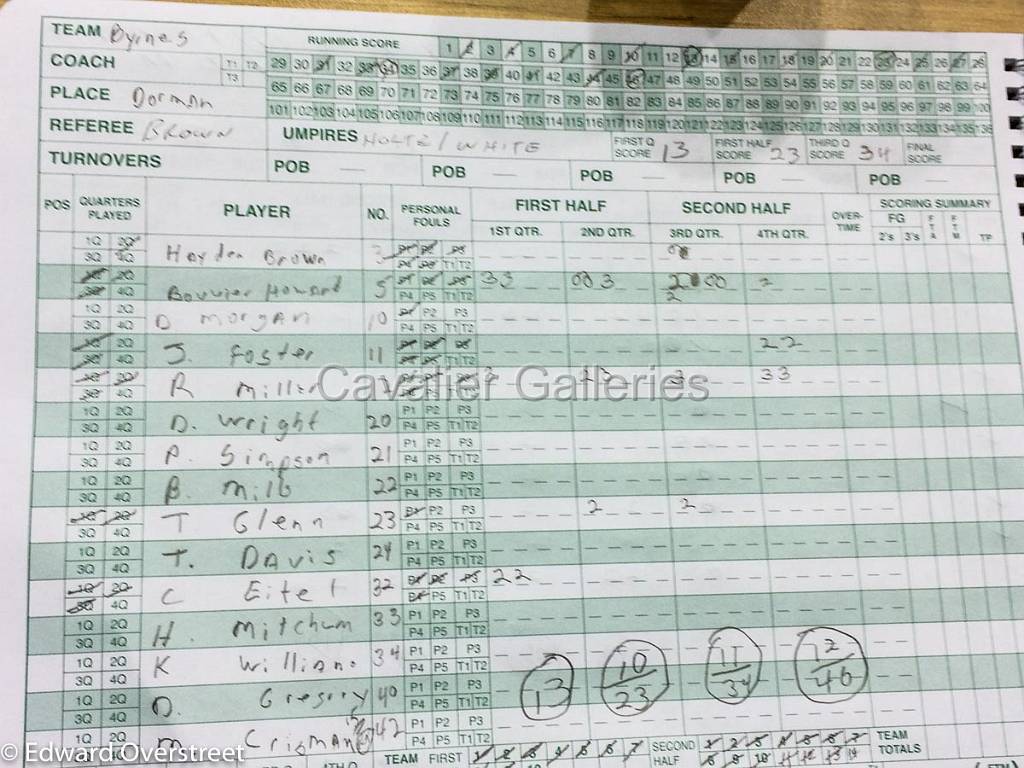 TEAM Byrnes
RUNNING SCORE 1 2 3 4 5 6 7 8 9 10 11 12 13 14 15 16 17 18 19 20 21 22 23 24 25 26 27 28
COACH T1 T2 29 30 31 32 33 34 35 36 37 38 39 40 41 42 43 44 45 46 47 48 49 50 51 52 53 54 55 56 57 58 59 60 61 62 63 64
T3 65 66 67 68 69 70 71 72 73 74 75 76 77 78 79 80 81 82 83 84 85 86 87 88 89 90 91 92 93 94 95 96 97 98 99 100
PLACE Dorman 101 102 103 104 105 106 107 108 109 110 111 112 113 114 115 116 117 118 119 120 121 122 123 124 125 126 127 128 129 130 131 132 133 134 135 136
REFEREE Brown UMPIRES / WHITE FIRST Q SCORE 13 FIRST HALF SCORE 23 THIRD Q SCORE 34 FINAL SCORE
TURNOVERS POB — POB — POB — POB — POB —
POS QUARTERS PLAYED PLAYER NO. PERSONAL FOULS FIRST HALF SECOND HALF OVER-TIME SCORING SUMMARY
1ST QTR. 2ND QTR. 3RD QTR. 4TH QTR. FG 2's 3's FTA FTM TP
1Q 2Q 3Q 4Q Hayden Brown 3 T1 T2
2Q 4Q Bouvier Howard 5 P4 P5 T1 T2 33 003 2
1Q 2Q 3Q 4Q D morgan 10 P1 P2 P3 P4 P5 T1 T2
2Q 4Q J. Foster 11 T1 T2 22
R miller 33
1Q 2Q 3Q 4Q D. wright 20 P1 P2 P3 P4 P5 T1 T2
1Q 2Q 3Q 4Q P. Simpson 21 P1 P2 P3 P4 P5 T1 T2
1Q 2Q 3Q 4Q B. Milb 22 P1 P2 P3 P4 P5 T1 T2
1Q 2Q 3Q 4Q T Glenn 23 P1 P2 P3 P4 P5 T1 T2 2 2
1Q 2Q 3Q 4Q T. DAVIS 24 P1 P2 P3 P4 P5 T1 T2
1Q 2Q 3Q 4Q C 32 P5 T1 T2 22
1Q 2Q 3Q 4Q H. Mitchum 33 P1 P2 P3 P4 P5 T1 T2
1Q 2Q 3Q 4Q K 34 P1 P2 P3 P4 P5 T1 T2
1Q 2Q 3Q 4Q D. Gregory 40 P1 P2 P3 P4 P5 T1 T2
13 10/23 11/34 12/46
1Q 2Q m. Crisman 42 P1 P2 P3 P4 P5 T1 T2
TEAM FIRST 1 2 3 4 5 6 7 SECOND HALF 1 2 3 4 5 6 7 8 9 10 11 12 13 14 TEAM TOTALS
Cavalier Galleries
©Edward Overstreet